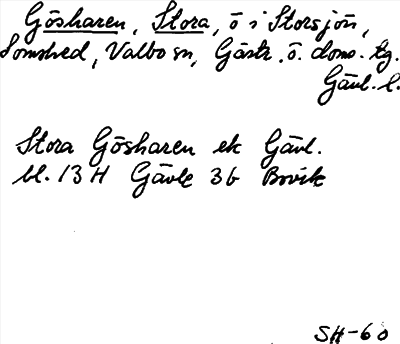 Gösharen, Stora, ö i Storsjön,
Valbo sn, Gästr. ö. doms. tg.
Gävl. l.
Stora Gösharen ek Gävl.
bl. 13 H Gävle 3b Bovik
SH-60